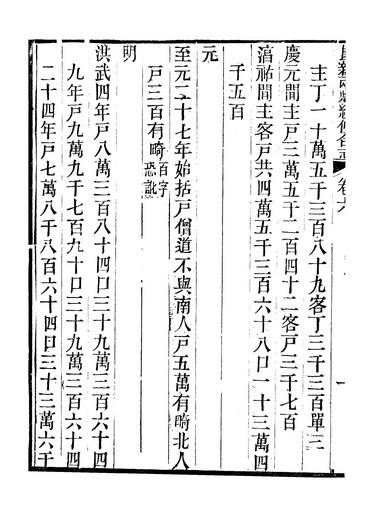 崑新兩縣續修合志 卷六
主丁一十萬五千三百八十九客丁三千三百單三
慶元間主戶三萬五千二百四十二客戶三千七百
淳祐間主客戶共四萬五千三百六十八口一十三萬四
千五百
元
至元二十七年始括戶僧道不與南人戶五萬有畸北人
戶三百有畸百字恐訛
明
洪武四年戶八萬三百八十四口三十九萬三百六十四
九年戶九萬九千七百九十口三十九萬三百六十四
二十四年戶七萬八千八百六十四口三十三萬六千